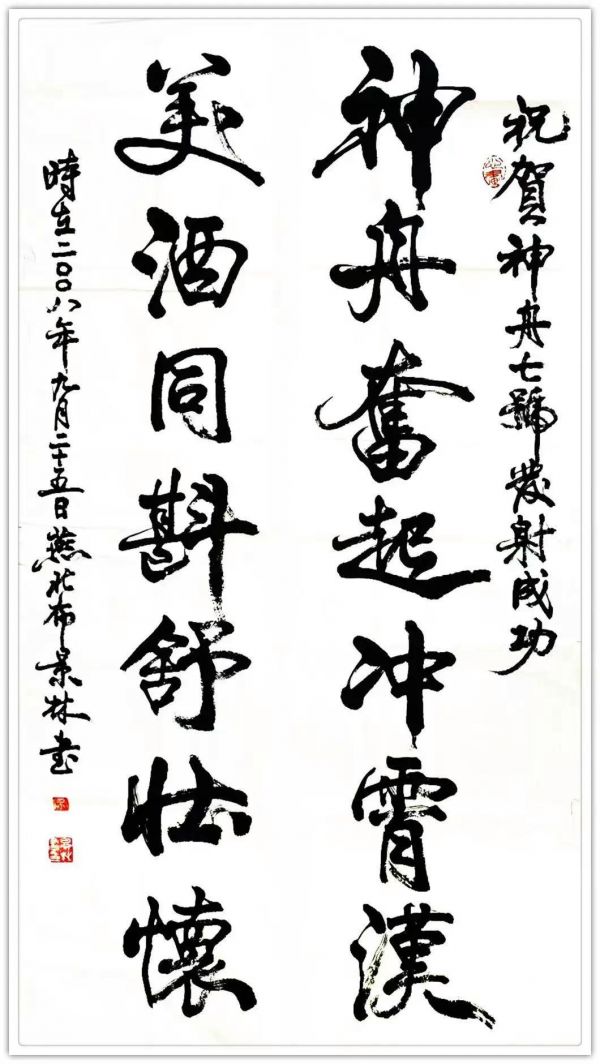 祝賀神舟七號發射成功
神舟奮起冲霄漢
美酒同斟舒壮懷
時在二〇〇八年九月二十五日燕北布景林書